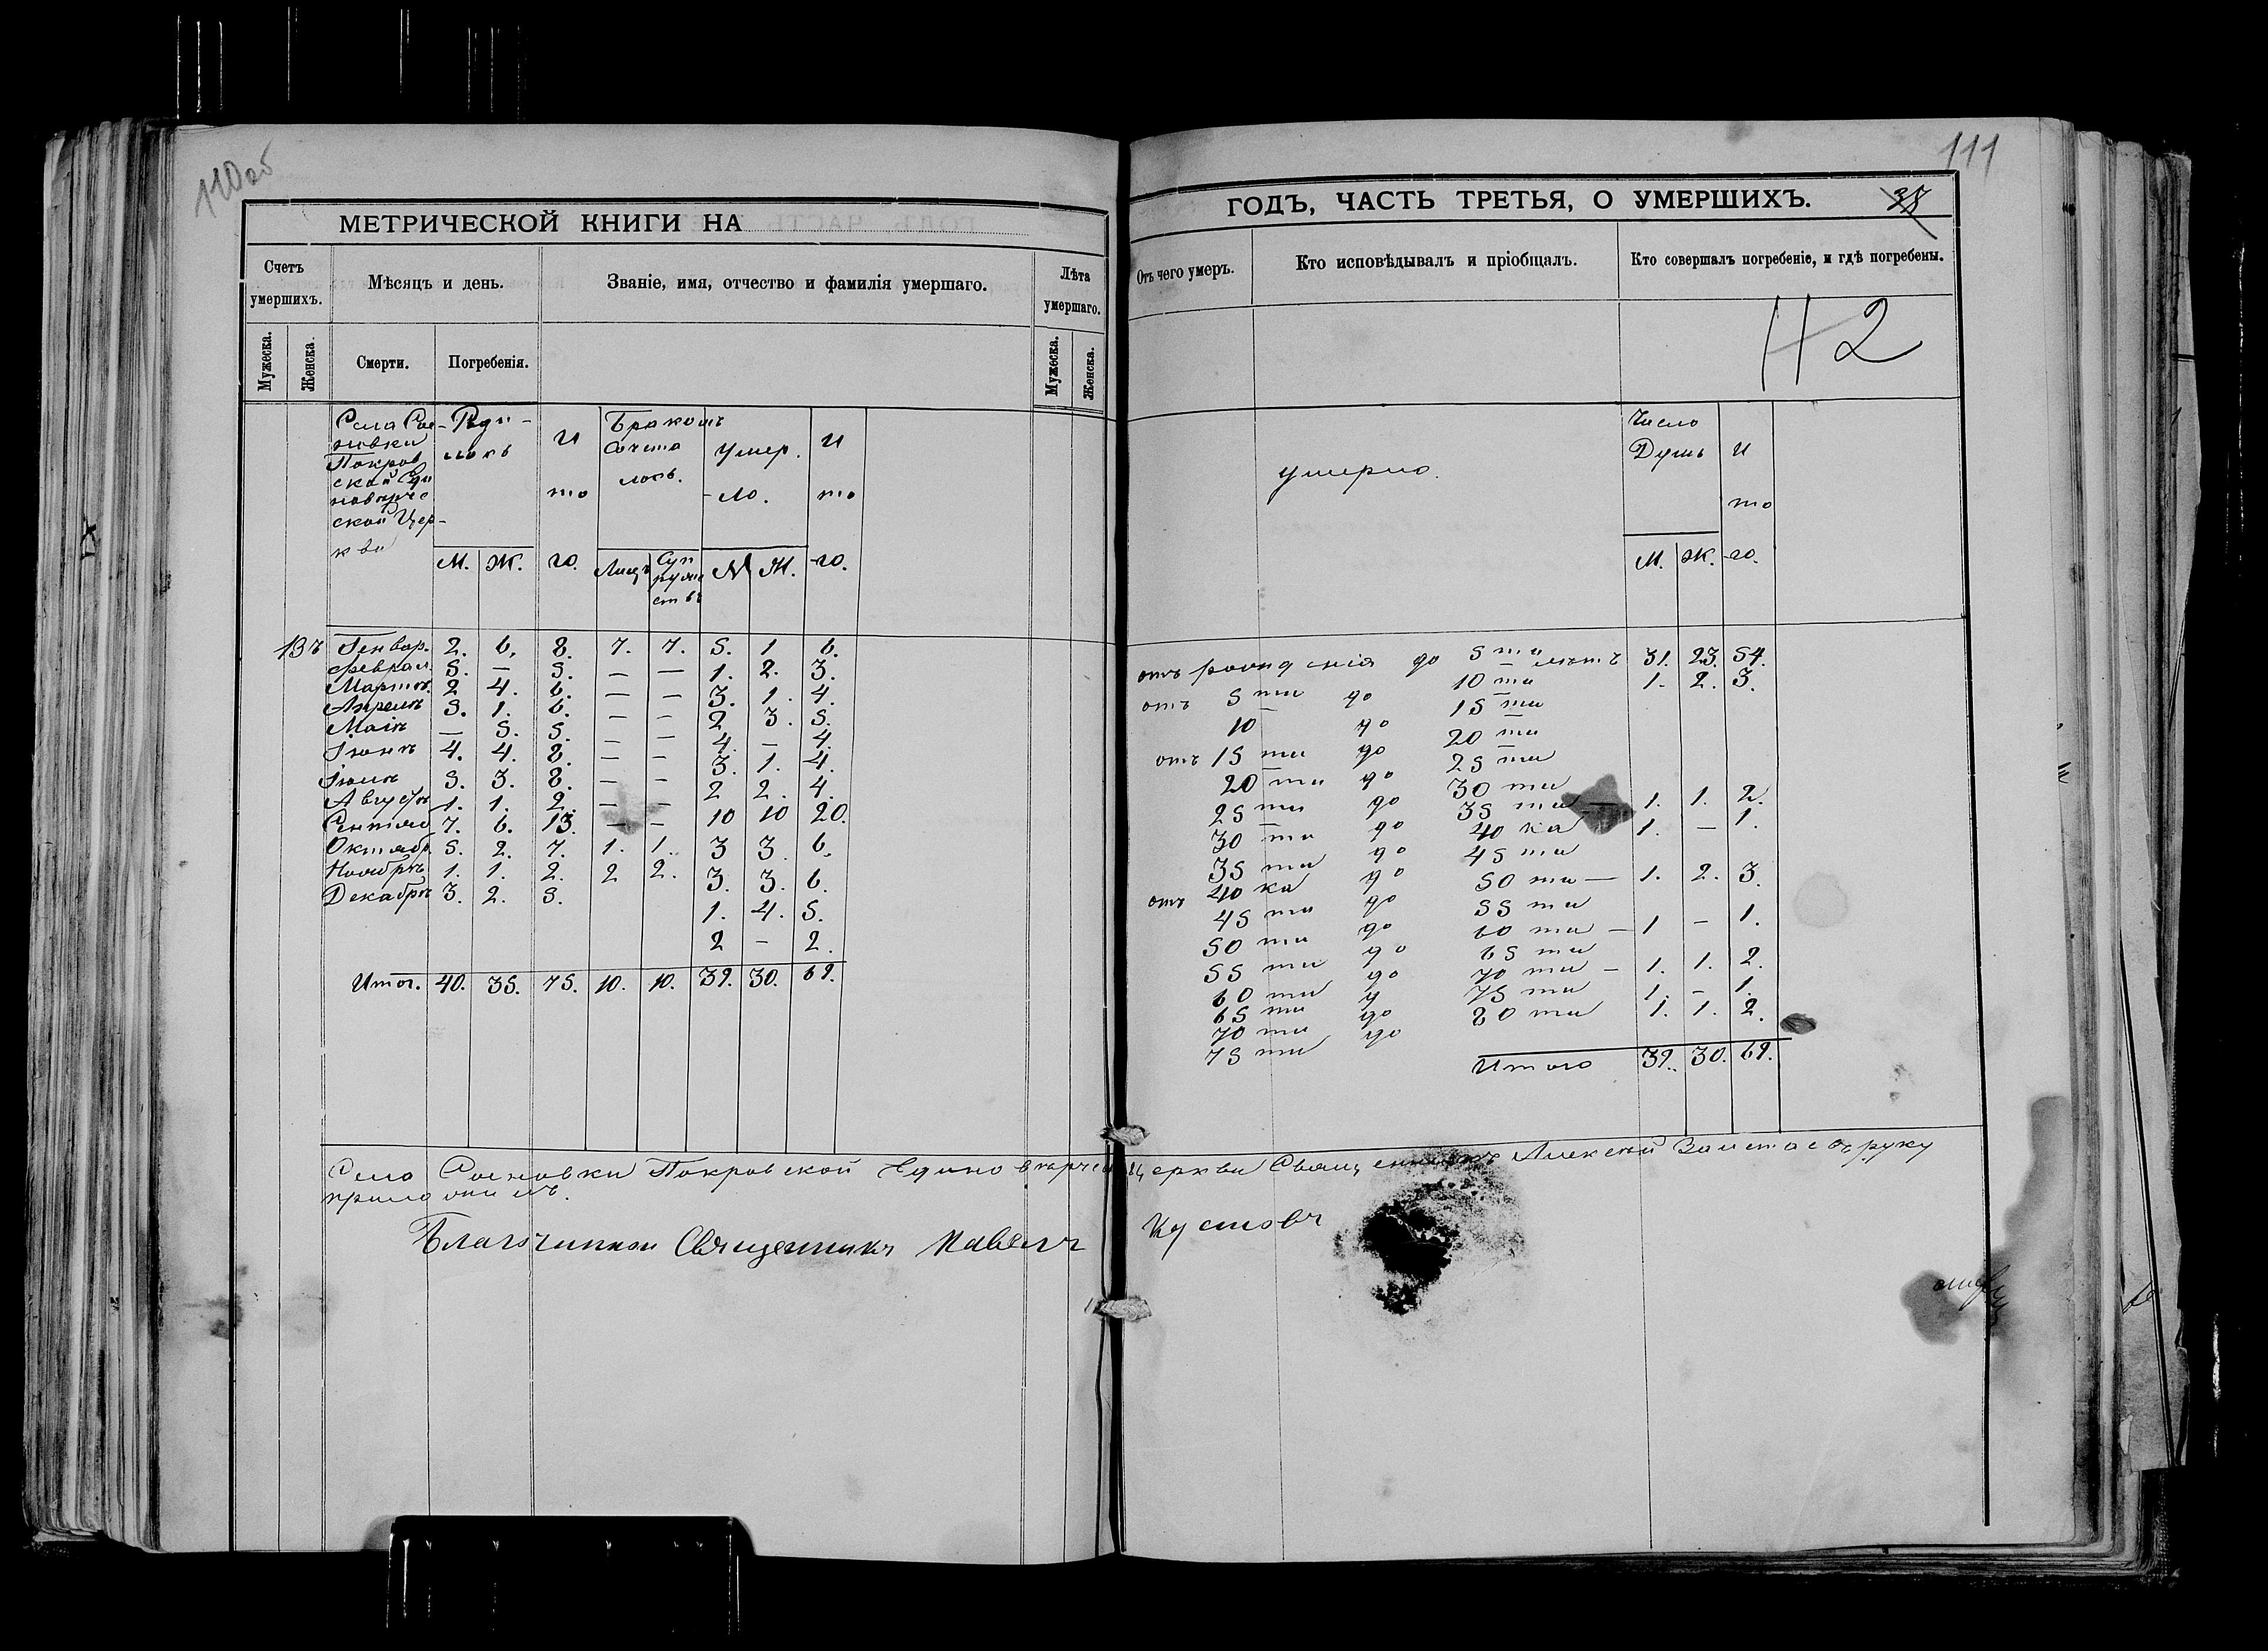 110 об
МЕТРИЧЕСКОЙ КНИГИ НА
Счетъ умершихъ.
Мѣсяцъ и день.
Званіе, имя, отчество и фамилія умершаго.
Лѣта умершаго.
Мужеска.
Женска.
Смерти.
Погребенія.
Мужеска.
Женска.
Села Сос-
новки
Покров
ской Еди
новѣрче
ской Цер-
кви
Роди-
лось
И
то
го.
Бракомъ
сочета
лось.
Умер.
-ло.
И
то
-го.
М. Ж. Лицъ Суп
руже
ствъ М Ж.
Генвар. 2. 6. 8. 7. 7. 5. 1 6.
Феврал. 5. — 5. — — 1. 2. 3.
Мартъ. 2 4. 6. — — 3. 1. 4.
Апрель 5. 1. 6. — — 2 3. 5.
Маiъ — 5. 5. — — 4. — 4.
Іюнь 4. 4. 8. — — 3. 1. 4.
Іюль 5. 3. 8. — — 2 2. 4.
Августъ 1. 1. 2. — — 10 10 20.
Сентяб 7. 6. 13. — — 3 3. 6.
Октябр. 5. 2. 7. 1. 1. 3. 3. 6.
Ноябрь 1. 1. 2. 2 2. 1. 4. 5.
Декабрь 3. 2. 5. 2 — 2.
Итог. 40. 35. 75. 10. 10. 39. 30. 69.
111
ГОДЪ, ЧАСТЬ ТРЕТЬЯ, О УМЕРШИХЪ.
Отъ чего умеръ.
Кто исповѣдывалъ и пріобщалъ.
Кто совершалъ погребеніе, и гдѣ погребены.
умерло.
Число
Душъ
И
то
-го.
М. Ж.
отъ рожденія до 5 ти лѣтъ 31. 23. 54.
отъ 5 ти до 10 ти 1. 2. 3.
10 до 15 ти
отъ 15 ти до 20 ти
20 ти до 25 ти
25 ти до 30 ти
30 ти до 35 ти — 1. 1. 2.
35 ти до 40 ка 1. — 1.
отъ 40 ка до 45 ти
45 ти до 50 ти — 1. 2. 3.
50 ти до 55 ти
55 ти до 60 ти — 1 — 1.
60 ти до 65 ти
65 ти до 70 ти — 1. 1. 2.
70 ти до 75 ти 1. — 1.
75 ти до 80 ти 1. 1. 2.
Итого 39. 30. 69.
Села Сосновки Покровской Единовѣрчес Церкви Священникъ Алексѣй Замета съ руку
приложилъ.
Благочинной Священникъ Павелъ